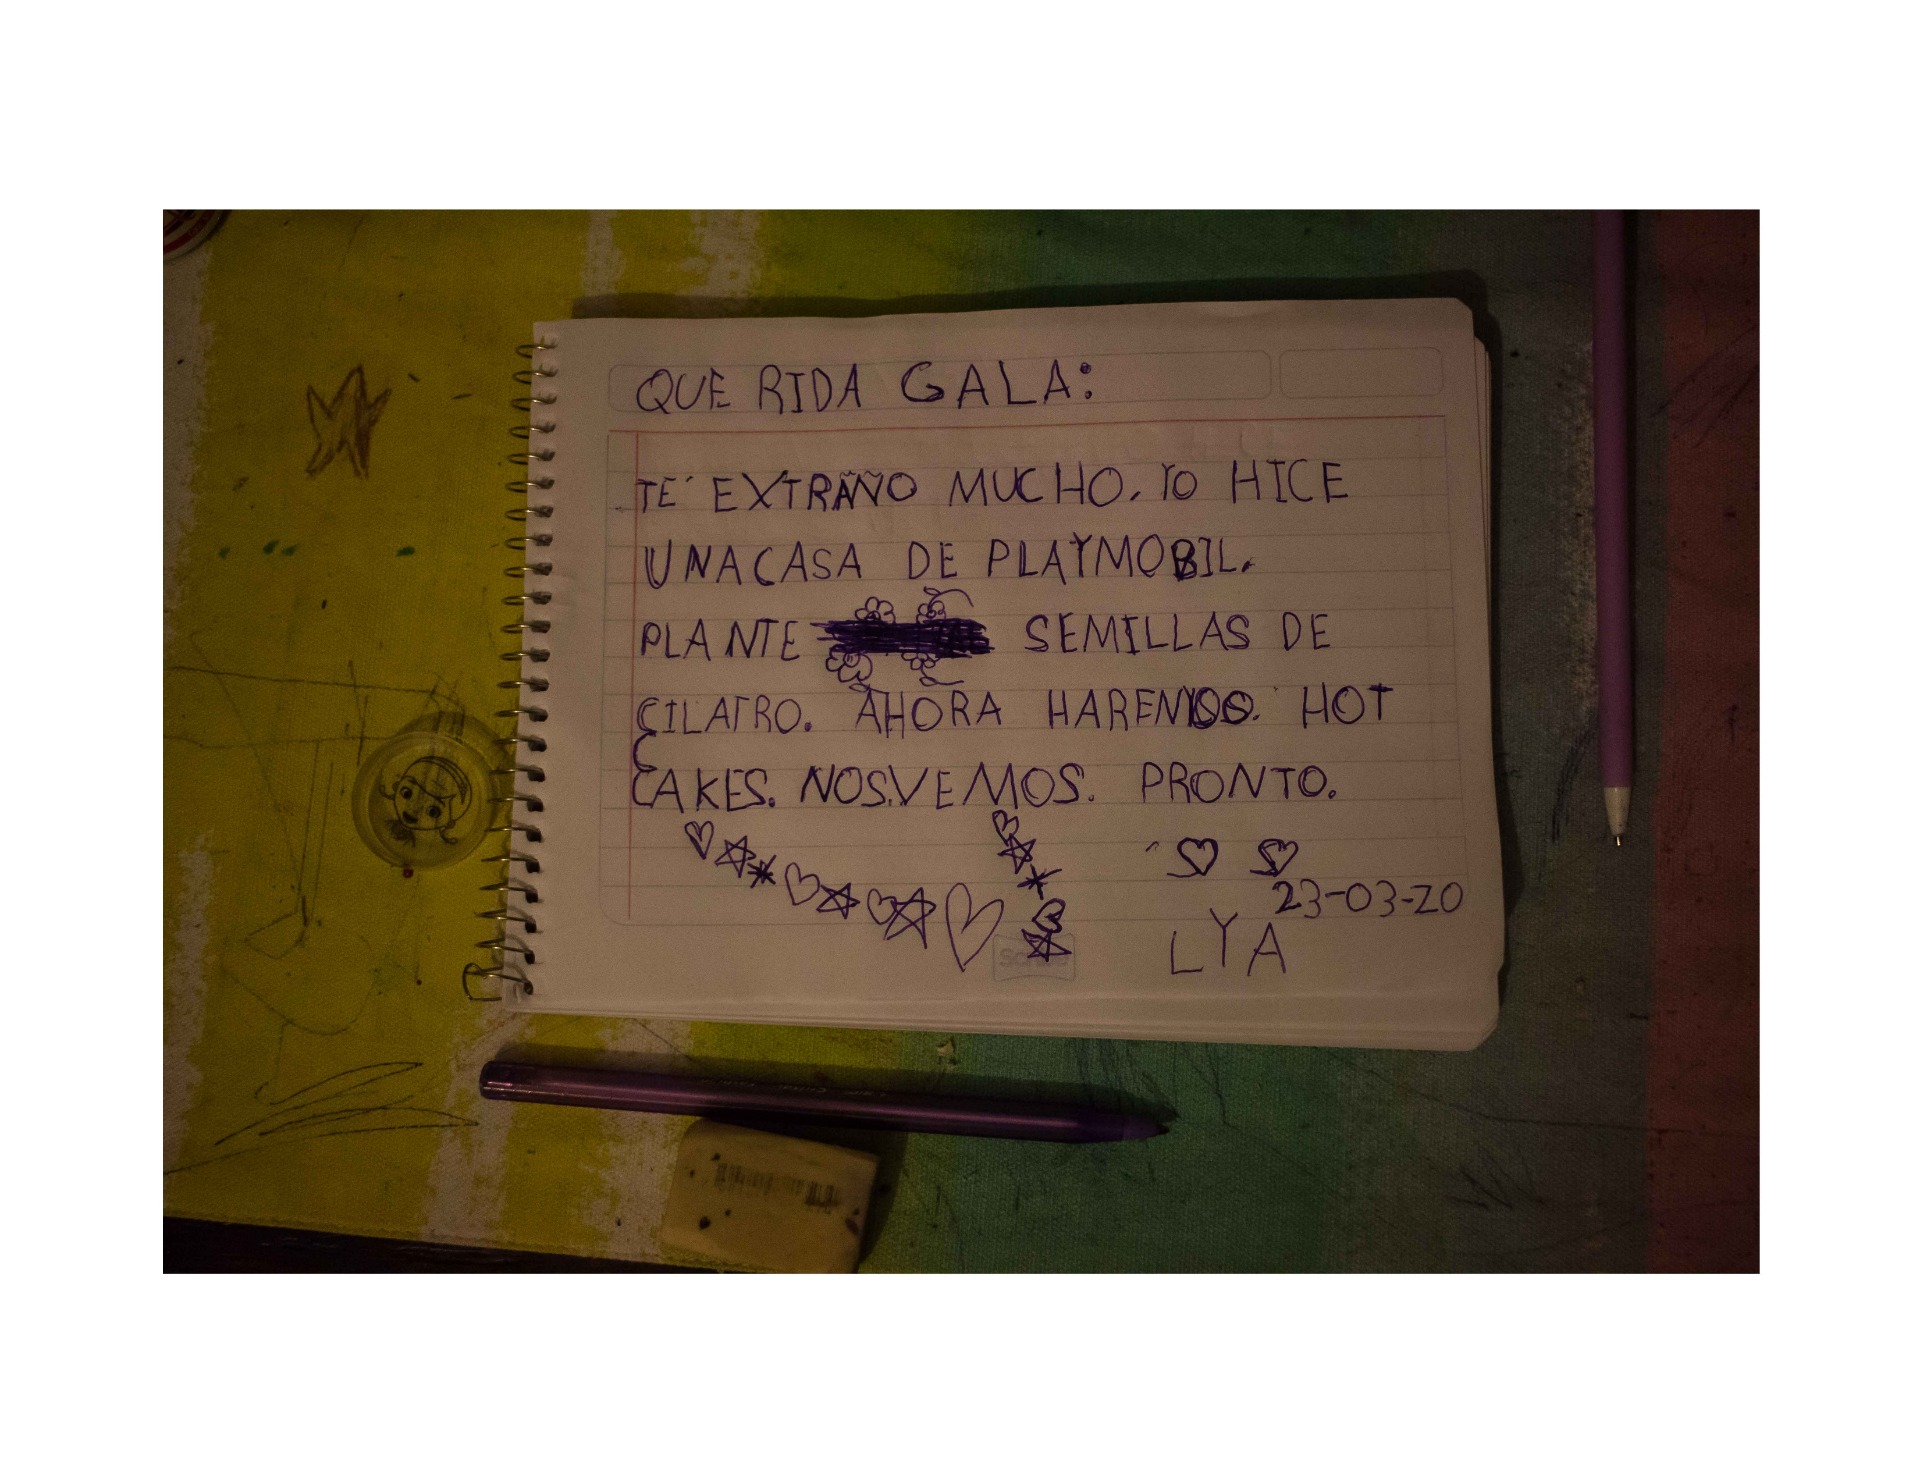 QUE RIDA GALA:
TE EXTRAÑO MUCHO. YO HICE
UNA CASA DE PLAYMOBIL.
PLANTE SEMILLAS DE
CILATRO. AHORA HAREMOS. HOT
CAKES. NOS.VEMOS. PRONTO.
23-03-20
LYA